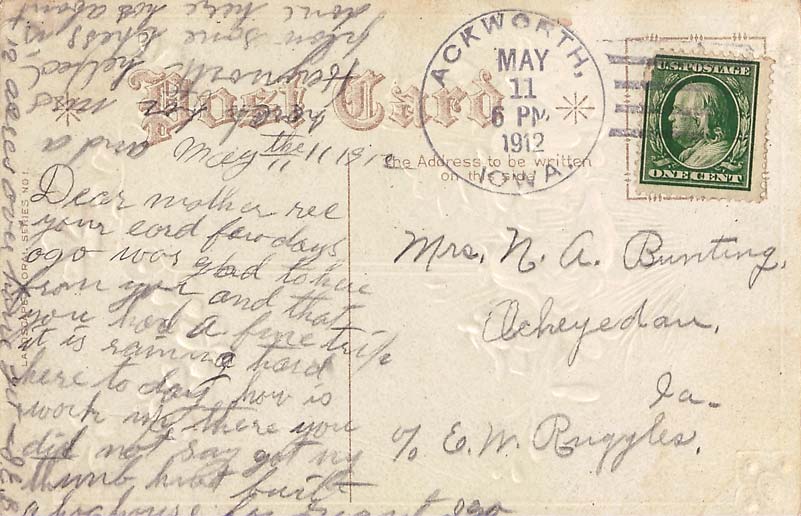 Post Card
ACKWORTH,
MAY
11
6 PM
1912
IOWA.
U.S. POSTAGE
ONE CENT
The Address to be written
on this side
LANDSCAPE FLORAL SERIES NO 1.
May the 11 1912
Dear mother rec
your cord few days
ogo was glad to hear
from you and that
you had a fine trip
it is raining hard
here to day how is
work up there you
did not say got my
thumb hurt
ago
and a
here for
helped
plow some
done here has about
12 acres
Mrs. N. A. Bunting,
Ocheyedan,
Ia-
c/o E. W. Ruggles.